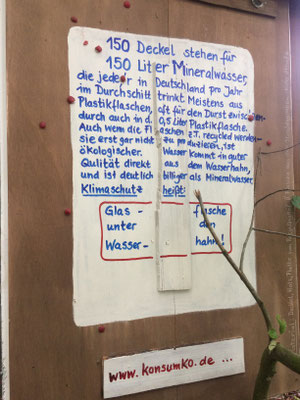 150 Deckel stehen für
150 Liter Mineralwasser,
die jede:r in Deutschland pro Jahr
im Durchschitt trinkt. Meistens aus
Plastikflaschen, oft für den Durst zwischen-
durch auch in d. 0,5 Liter Plastikflasche.
Auch wenn die Flaschen z.T. recycled werden –
sie erst gar nicht zu produzieren, ist
ökologischer. Wasser kommt in guter
Qulität direkt aus dem Wasserhahn,
und ist deutlich billiger als Mineralwasser.
Klimaschutz heißt:
Glas – flasche
unter den
Wasser – hahn!
www.konsumko.de ...